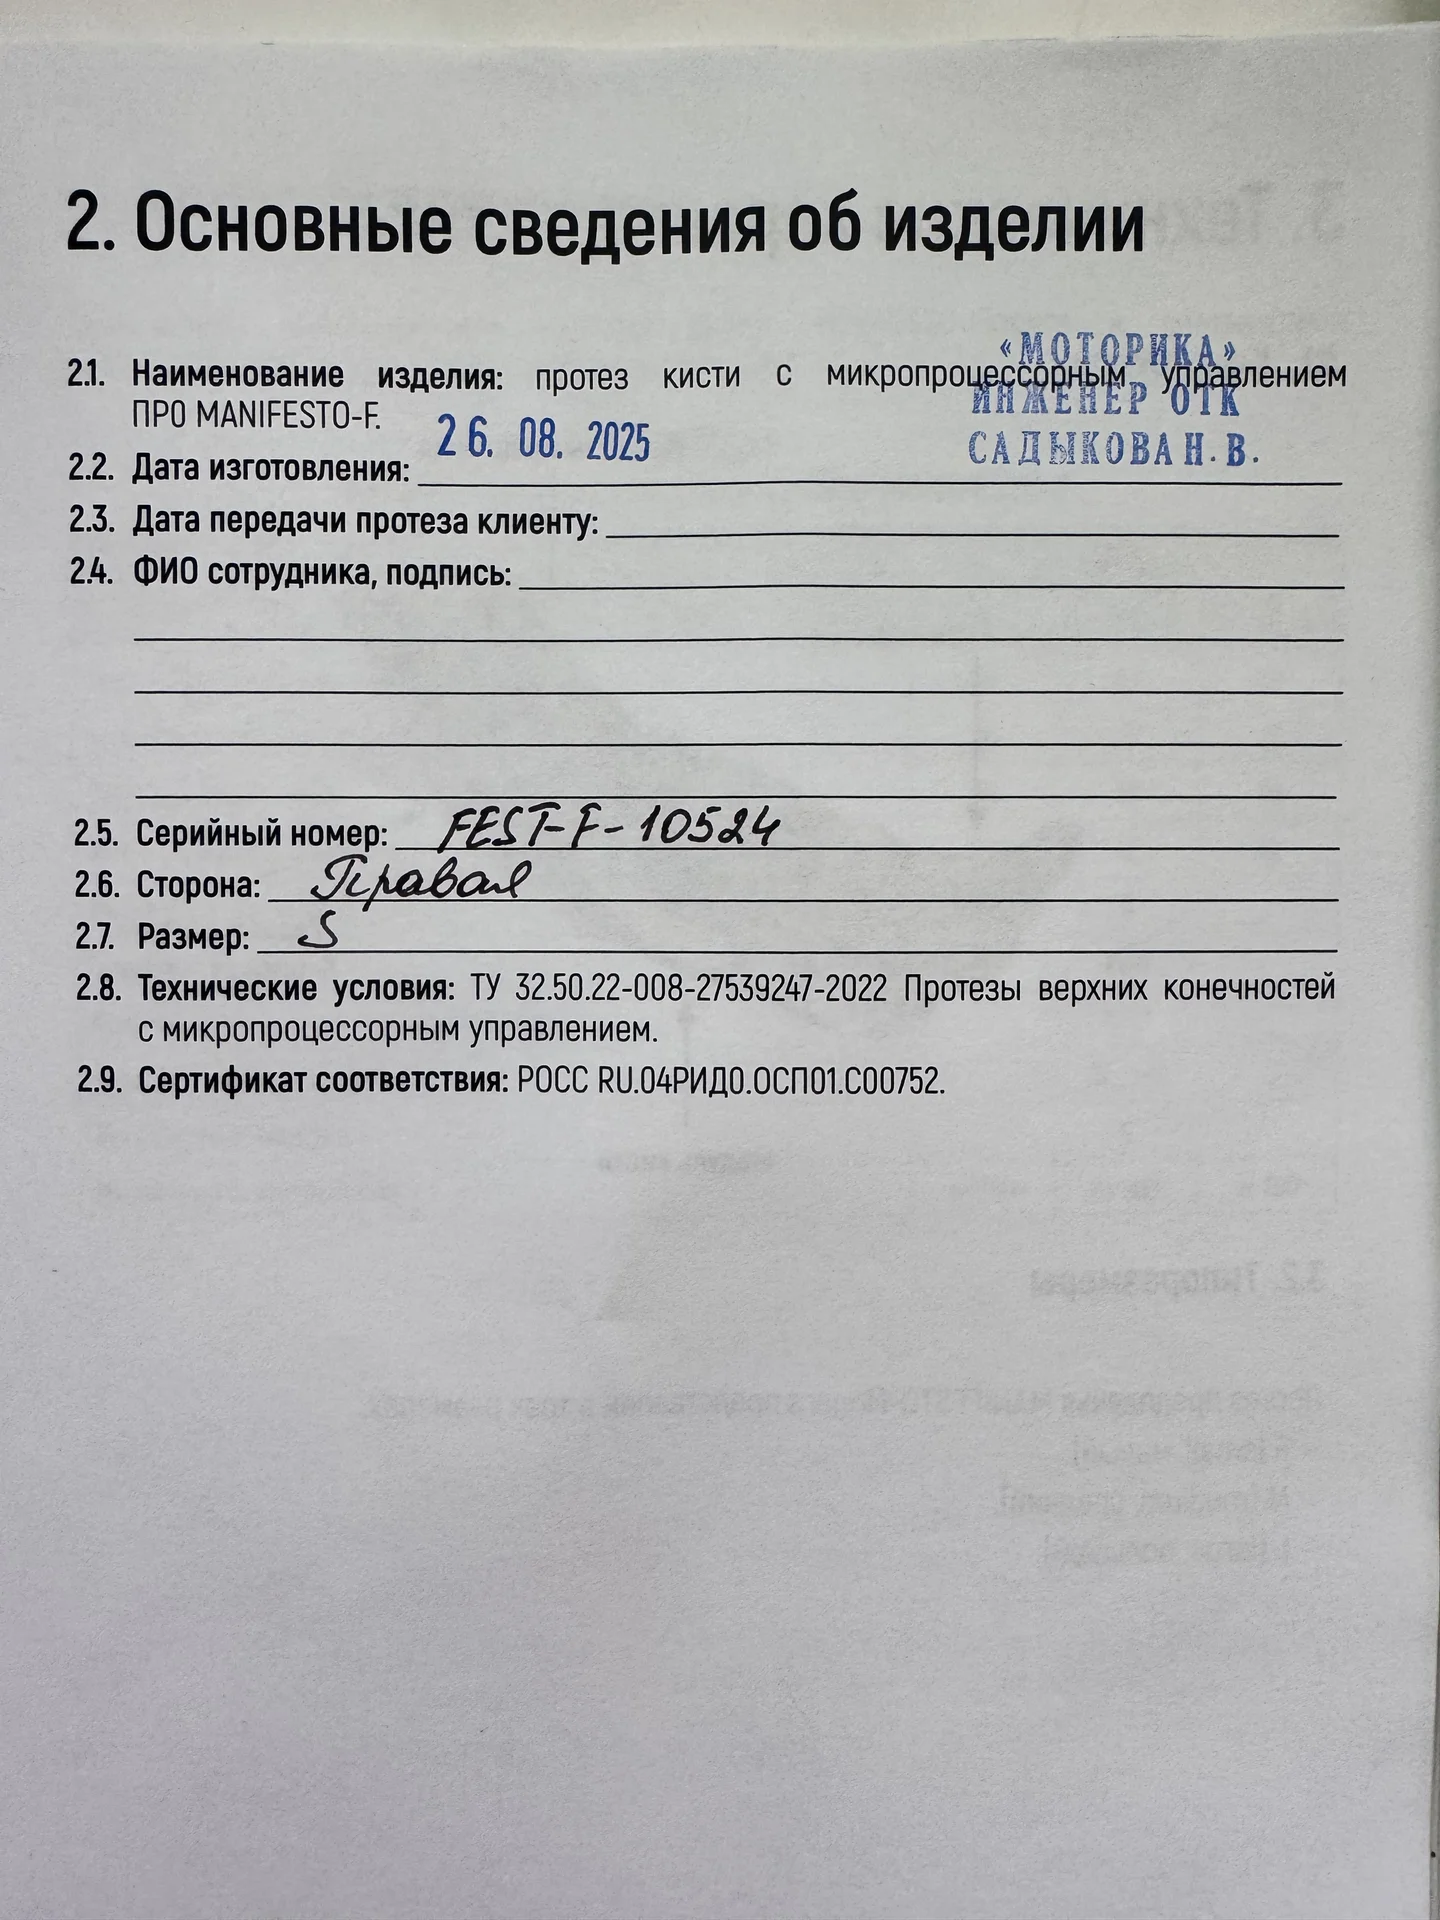 2. Основные сведения об изделии
«МОТОРИКА»
2.1. Наименование изделия: протез кисти с микропроцессорным управлением
ИНЖЕНЕР ОТК
ПРО MANIFESTO-F.
26. 08. 2025
САДЫКОВА Н. В.
2.2. Дата изготовления:
2.3. Дата передачи протеза клиенту:
2.4. ФИО сотрудника, подпись:
2.5. Серийный номер: FEST-F-10524
2.6. Сторона: Правая
2.7. Размер: S
2.8. Технические условия: ТУ 32.50.22-008-27539247-2022 Протезы верхних конечностей
с микропроцессорным управлением.
2.9. Сертификат соответствия: РОСС RU.04РИД0.ОСП01.С00752.